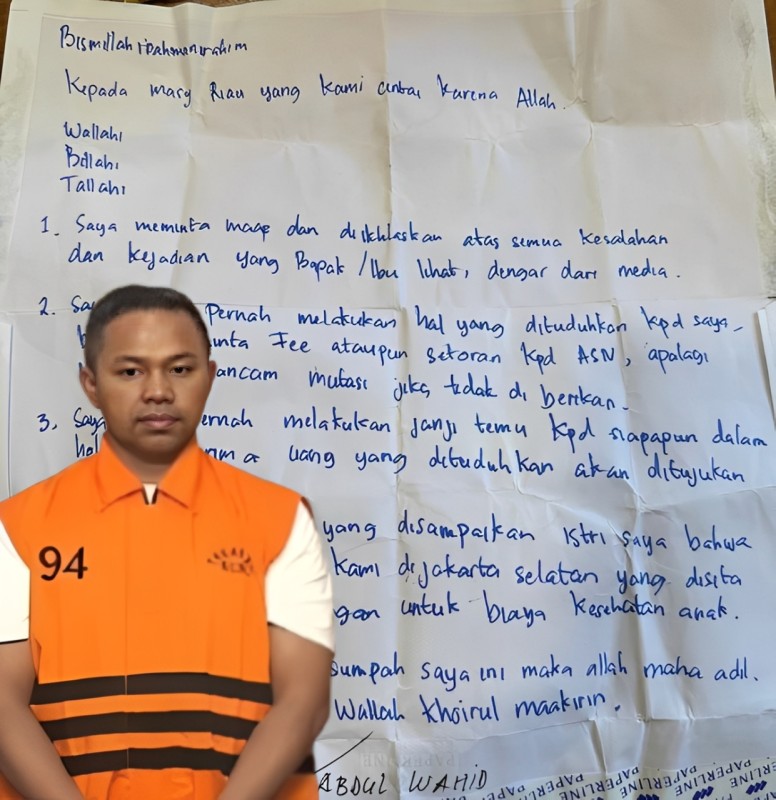 Bismillahirahmanirahim
Kepada masy Riau yang kami cintai karena Allah.
Wallahi
Billahi
Tallahi
1. Saya meminta maap dan diikhlaskan atas semua kesalahan
dan kejadian yang Bapak/Ibu lihat, dengar dari media.
2. Sa Pernah melakukan hal yang dituduhkan kpd saya
inta Fee ataupun setoran kpd ASN, apalagi
ancam mutasi jika tidak di berikan.
3. Say ernah melakukan janji temu kpd siapapun dalam
hal ma uang yang dituduhkan akan ditujukan
yang disampaikan istri saya bahwa
kami di jakarta selatan yang disita
gan untuk biaya kesehatan anak.
sumpah saya ini maka allah maha adil.
Wallah khoirul maakirin.
ABDUL WAHID
94
PAPERLINE PAPERLINE PAPERLINE PAPERLINE